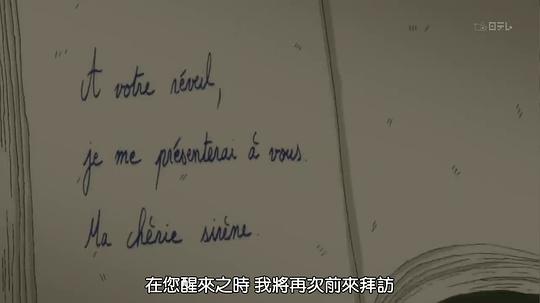 日テレ
A votre réveil,
je me présenterai à vous.
Ma chérie sirène.
在您醒來之時 我將再次前來拜訪